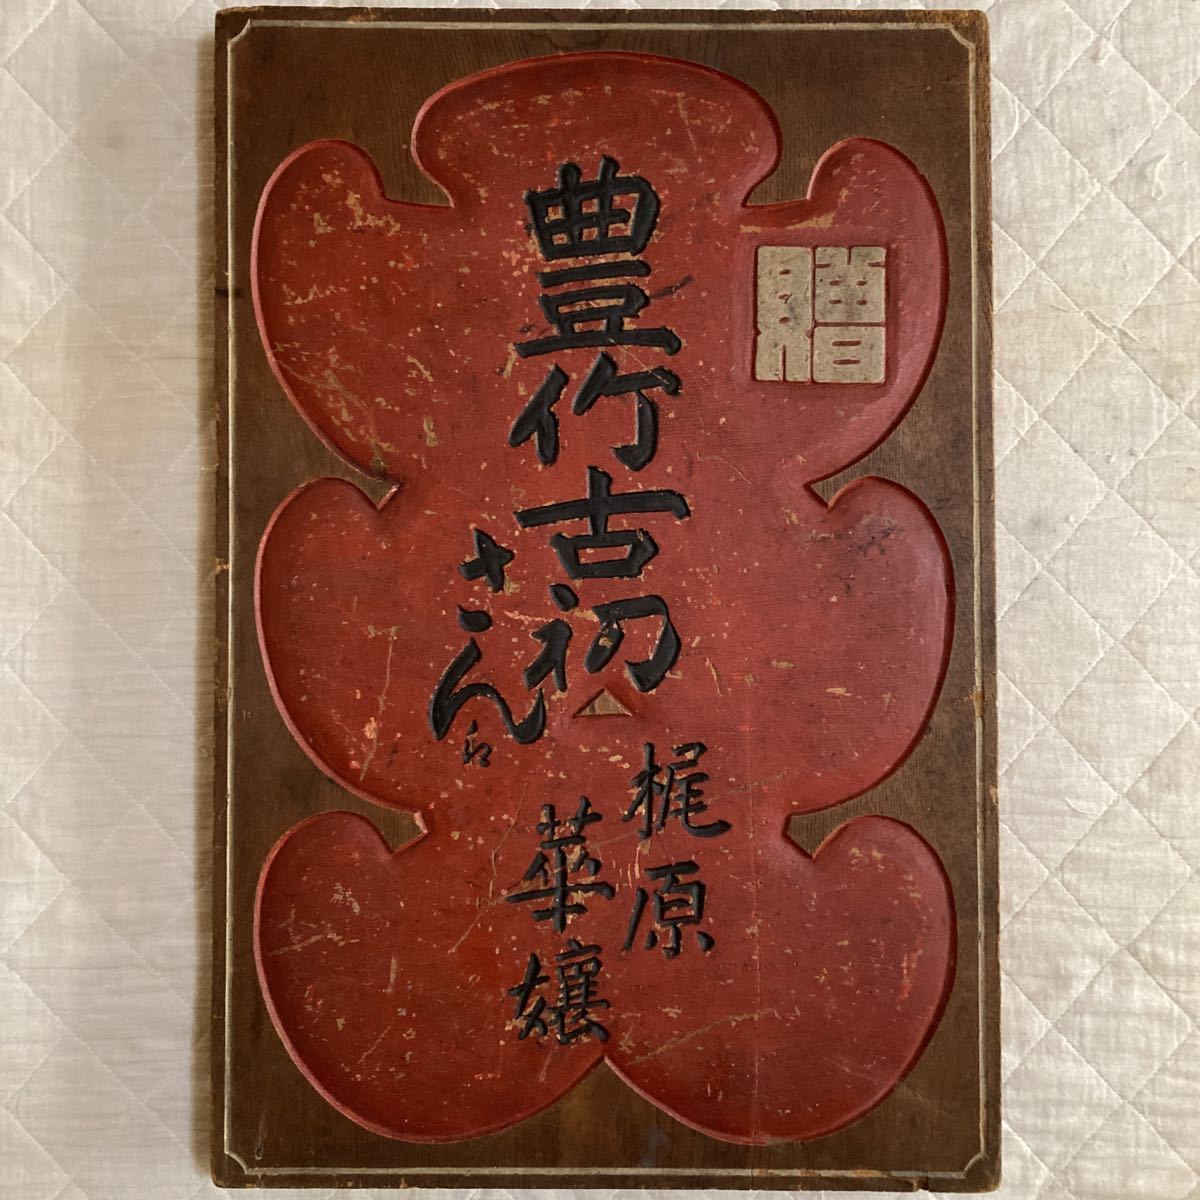 贈
豊竹古初
さん江
梶原
華嬢